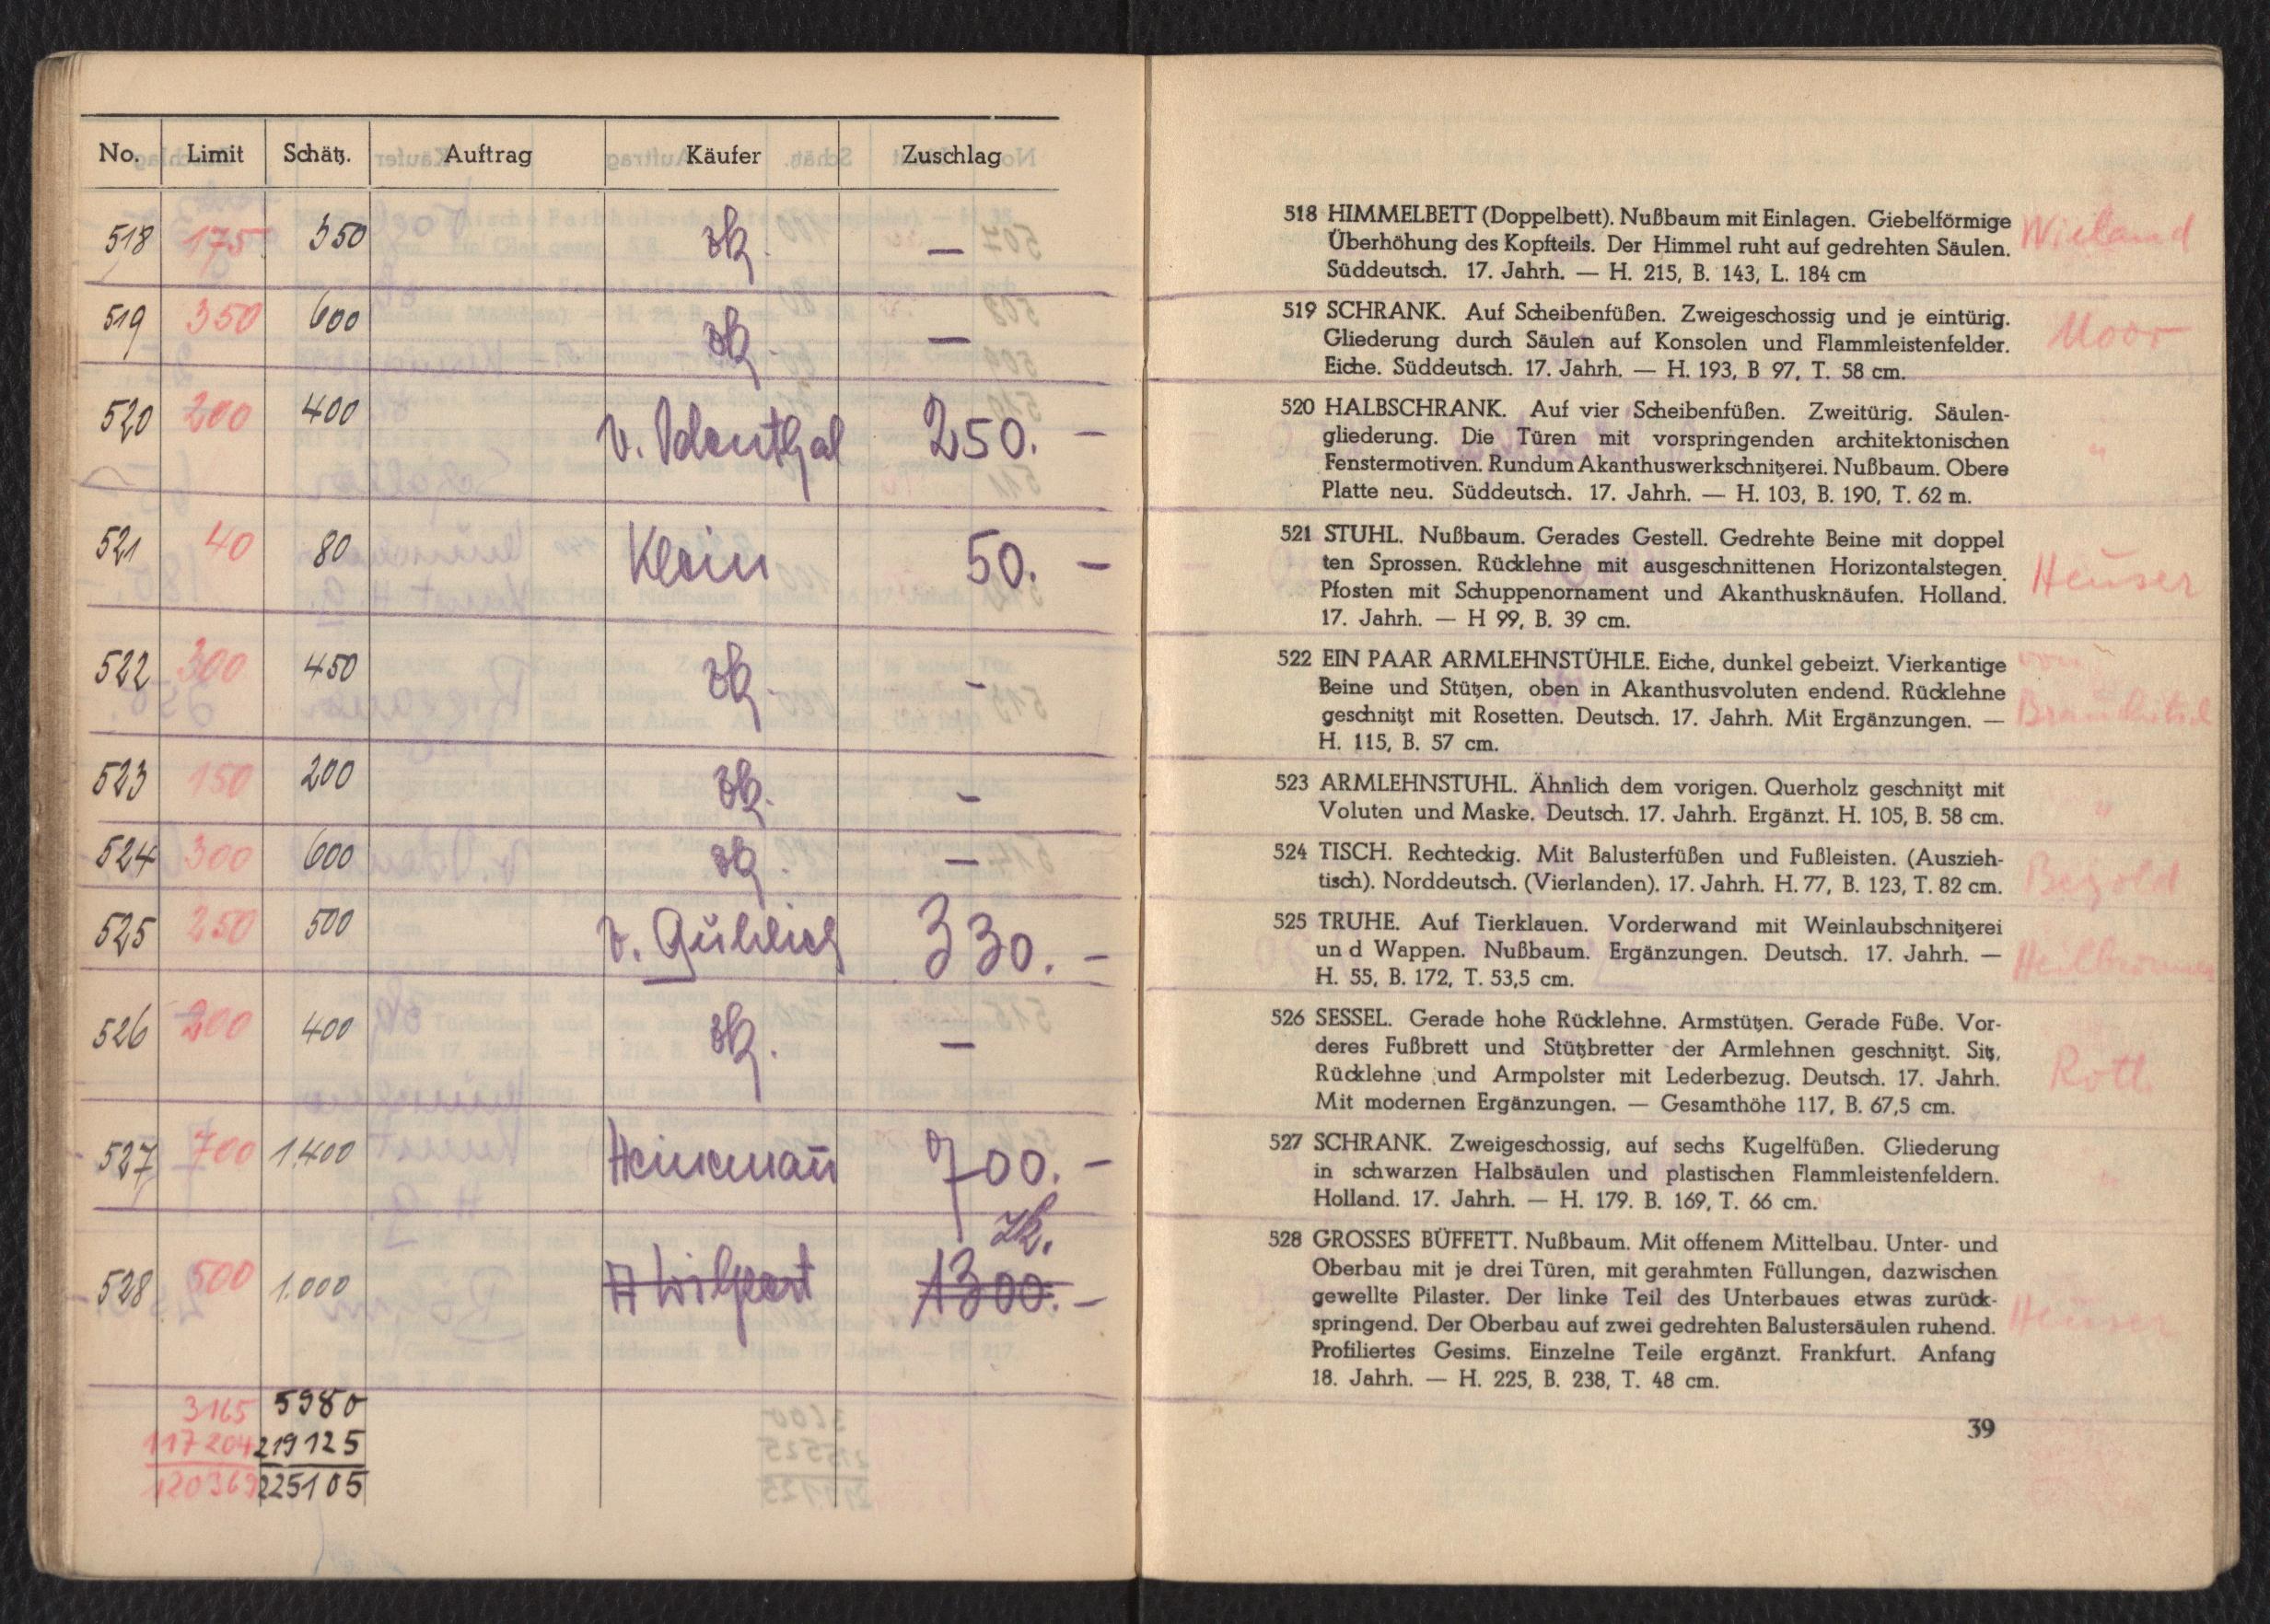 No. Limit Schätz. Auftrag Käufer Zuschlag
518 175 350 zk. —
519 350 600 zk. —
520 200 400 250. —
521 40 80 Klein 50. —
522 300 450 zk. -
523 150 200 zk. -
524 300 600 zk. —
525 250 500 330. -
526 200 400 zk. —
527 700 1.400 Heinemann 700. -
zk.
528 500 1.000 1300. -
3165 5980
117204 219125
120369 225105
518 HIMMELBETT (Doppelbett). Nußbaum mit Einlagen. Giebelförmige Wieland
Überhöhung des Kopfteils. Der Himmel ruht auf gedrehten Säulen.
Süddeutsch. 17. Jahrh. — H. 215, B. 143, L. 184 cm
519 SCHRANK. Auf Scheibenfüßen. Zweigeschossig und je eintürig. Moor
Gliederung durch Säulen auf Konsolen und Flammleistenfelder.
Eiche. Süddeutsch. 17. Jahrh. — H. 193, B 97, T. 58 cm.
520 HALBSCHRANK. Auf vier Scheibenfüßen. Zweitürig. Säulen-
gliederung. Die Türen mit vorspringenden architektonischen "
Fenstermotiven. Rundum Akanthuswerkschnitzerei. Nußbaum. Obere
Platte neu. Süddeutsch. 17. Jahrh. — H. 103, B. 190, T. 62 m.
521 STUHL. Nußbaum. Gerades Gestell. Gedrehte Beine mit doppel
ten Sprossen. Rücklehne mit ausgeschnittenen Horizontalstegen. Heuser
Pfosten mit Schuppenornament und Akanthusknäufen. Holland.
17. Jahrh. — H 99, B. 39 cm.
522 EIN PAAR ARMLEHNSTÜHLE. Eiche, dunkel gebeizt. Vierkantige von
Beine und Stützen, oben in Akanthusvoluten endend. Rücklehne
geschnitzt mit Rosetten. Deutsch. 17. Jahrh. Mit Ergänzungen. —
H. 115, B. 57 cm.
523 ARMLEHNSTUHL. Ähnlich dem vorigen. Querholz geschnitzt mit
Voluten und Maske. Deutsch. 17. Jahrh. Ergänzt. H. 105, B. 58 cm. "
524 TISCH. Rechteckig. Mit Balusterfüßen und Fußleisten. (Auszieh-
tisch). Norddeutsch. (Vierlanden). 17. Jahrh. H. 77, B. 123, T. 82 cm. Bezold
525 TRUHE. Auf Tierklauen. Vorderwand mit Weinlaubschnitzerei
un d Wappen. Nußbaum. Ergänzungen. Deutsch. 17. Jahrh. —
H. 55, B. 172, T. 53,5 cm.
526 SESSEL. Gerade hohe Rücklehne. Armstützen. Gerade Füße. Vor-
deres Fußbrett und Stützbretter der Armlehnen geschnitzt. Sitz,
Rücklehne und Armpolster mit Lederbezug. Deutsch. 17. Jahrh. Roth
Mit modernen Ergänzungen. — Gesamthöhe 117, B. 67,5 cm.
527 SCHRANK. Zweigeschossig, auf sechs Kugelfüßen. Gliederung
in schwarzen Halbsäulen und plastischen Flammleistenfeldern. "
Holland. 17. Jahrh. — H. 179. B. 169, T. 66 cm.
528 GROSSES BÜFFETT. Nußbaum. Mit offenem Mittelbau. Unter- und
Oberbau mit je drei Türen, mit gerahmten Füllungen, dazwischen
gewellte Pilaster. Der linke Teil des Unterbaues etwas zurück- Heuser
springend. Der Oberbau auf zwei gedrehten Balustersäulen ruhend.
Profiliertes Gesims. Einzelne Teile ergänzt. Frankfurt. Anfang
18. Jahrh. — H. 225, B. 238, T. 48 cm.
39